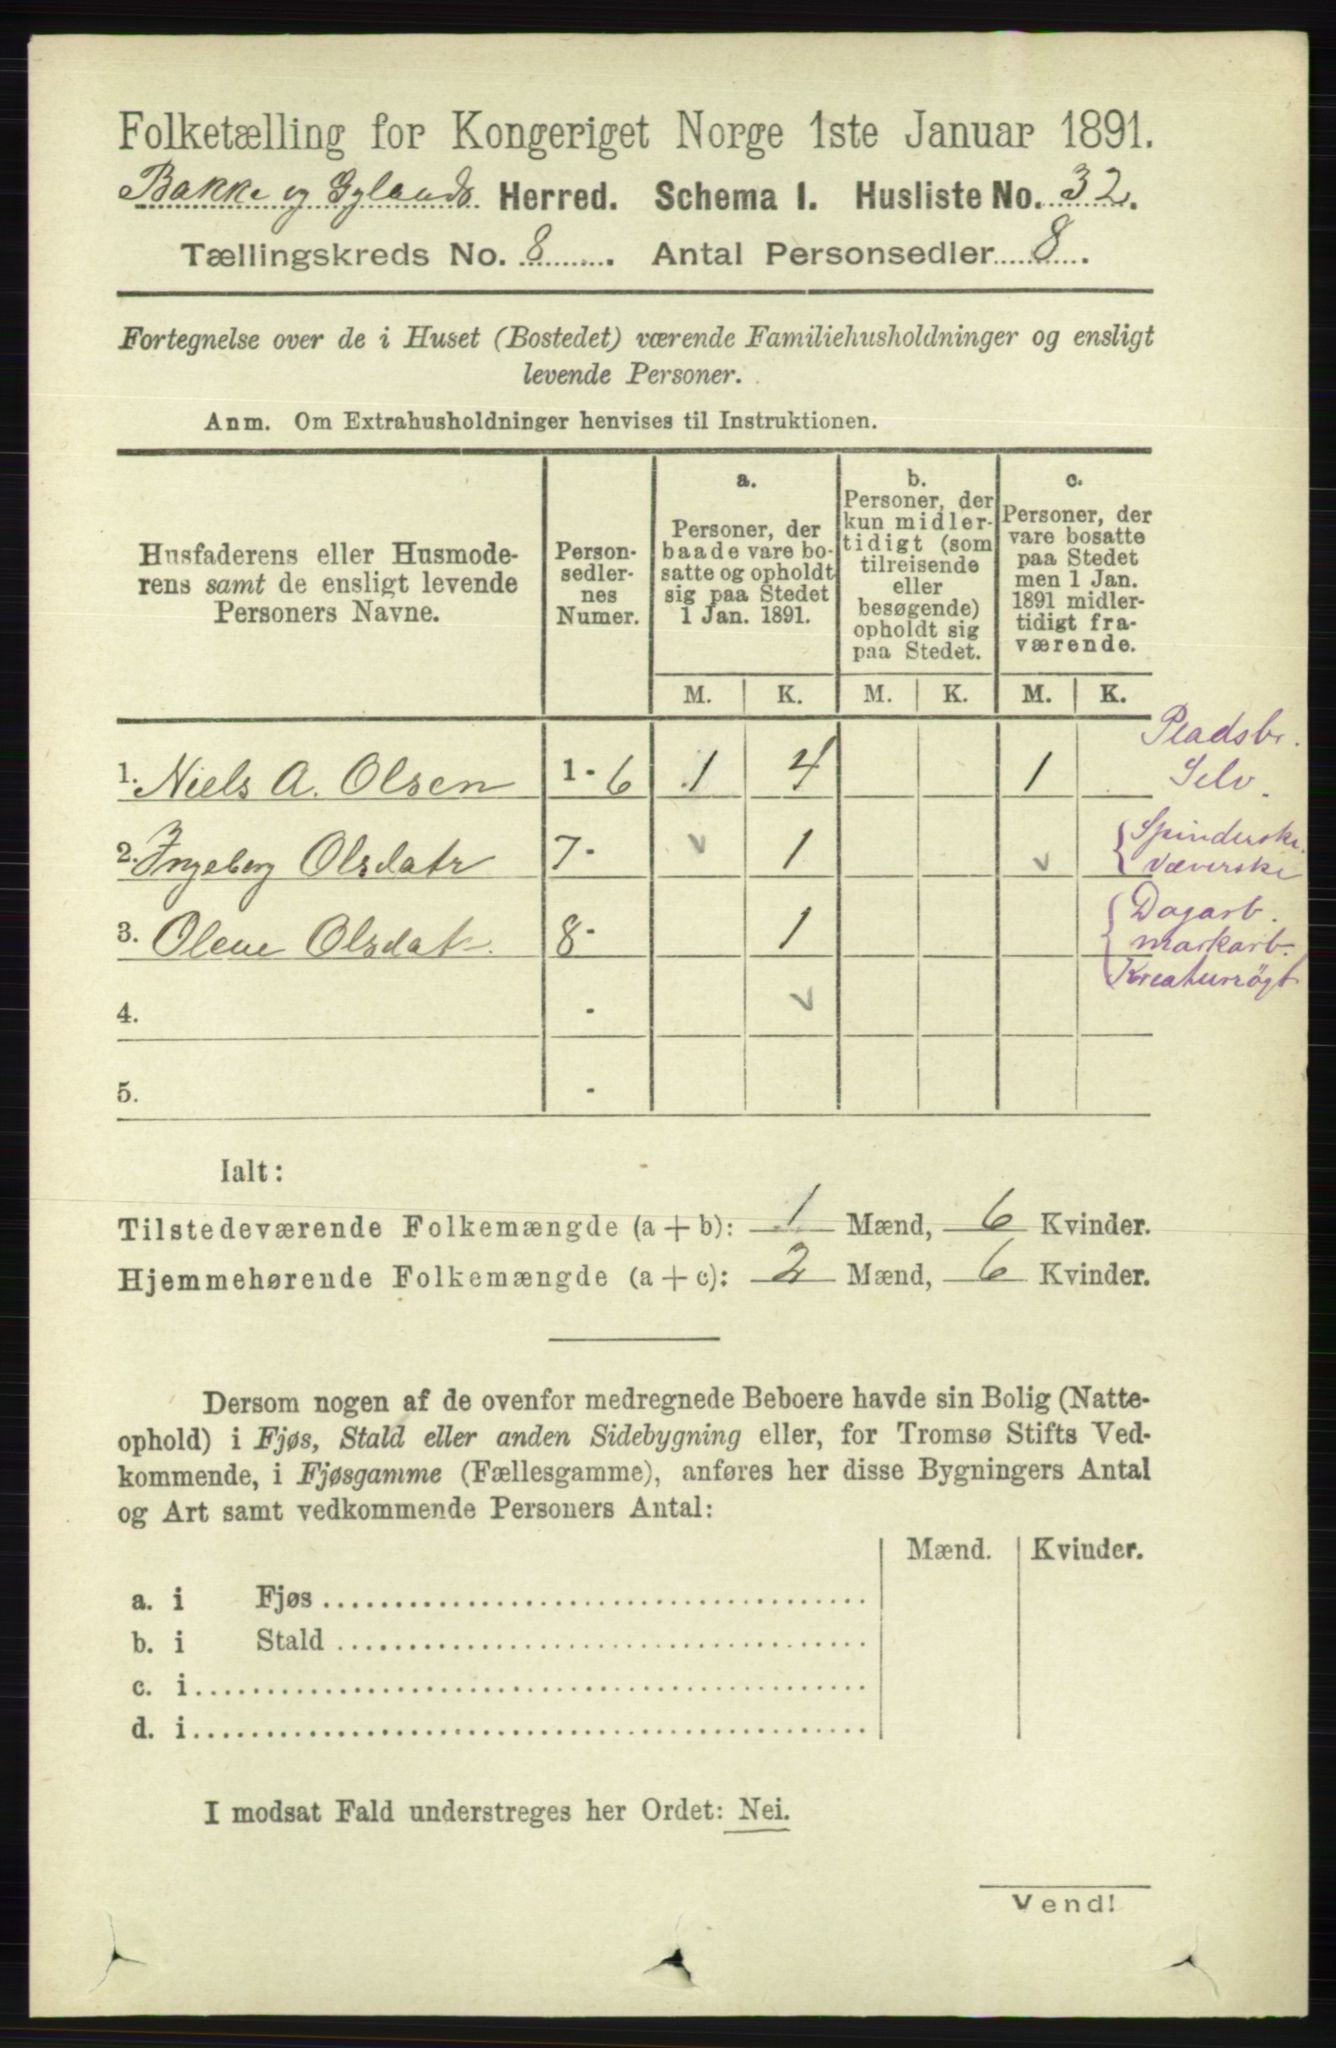 Folketælling for Kongeriget Norge 1ste Januar 1891.
Bakke og Gylands Herred. Schema I. Husliste No. 32.
Tællingskreds No. 8. Antal Personsedler 8.
Fortegnelse over de i Huset (Bostedet) værende Familiehusholdninger og ensligt
levende Personer.
Anm. Om Extrahusholdninger henvises til Instruktionen.
Husfaderens eller Husmode-
rens samt de ensligt levende
Personers Navne.
Person-
sedler-
nes
Numer.
a.
Personer, der
baade vare bo-
satte og opholdt
sig paa Stedet
1 Jan. 1891.
b.
Personer, der
kun midler-
tidigt (som
tilreisende
eller
besøgende)
opholdt sig
paa Stedet.
c.
Personer, der
vare bosatte
paa Stedet
men 1 Jan.
1891 midler-
tidigt fra-
værende.
M. K. M. K. M. K.
Pladsbr.
1. Niels A. Olsen 1 - 6 1 4 1 Selv.
2. Ingeborg Olsdatr 7 - v 1 v Spinderske.
Væverske
3. Olene Olsdatr. 8 - 1 Dagarb.
markarb.
Kreaturrøgt
4. - v
5. -
Ialt:
Tilstedeværende Folkemængde (a + b): 1 Mænd, 6 Kvinder.
Hjemmehørende Folkemængde (a + c): 2 Mænd, 6 Kvinder.
Dersom nogen af de ovenfor medregnede Beboere havde sin Bolig (Natte-
ophold) i Fjøs, Stald eller anden Sidebygning eller, for Tromsø Stifts Ved-
kommende, i Fjøsgamme (Fællesgamme), anføres her disse Bygningers Antal
og Art samt vedkommende Personers Antal:
Mænd. Kvinder.
a. i Fjøs
b. i Stald
c. i
d. i
I modsat Fald understreges her Ordet: Nei.
Vend!